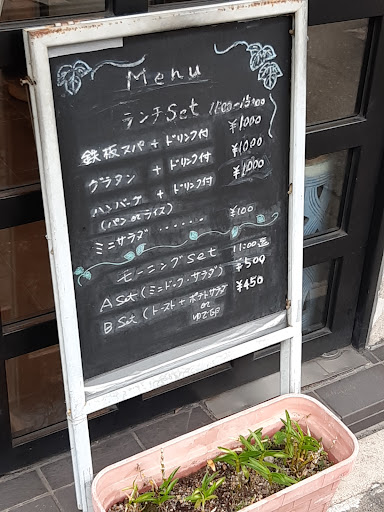 Menu
ランチSet 11:00~15:00
鉄板スパ + ドリンク付 ¥1000
グラタン + ドリンク付 ¥1000
ハンバーグ + ドリンク付 ¥1000
(パン or ライス)
ミニサラダ ・・・・・・ ¥100
モーニングSet 11:00迄
A Set (ミニドック・サラダ) ¥500
B Set (トースト + ポテトサラダ ¥450
or
ゆで卵)